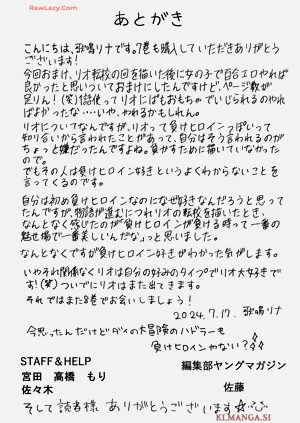 RawLazy.Com
あとがき
こんにちは、歌鳴リナです。7巻も購入していただきありがとう
ございます！
今回おまけ、リオ転校の回を描いた後に女の子で百合エロやれば
良かったと思いついておまけにしたんですけど、ページ数が
足りん！(笑)1話使ってリオにぱもおもちゃでいじられるのやれ
ばよかったな‥‥いや、やれるかもしれん。
リオについてなんですが、リオって負けヒロインっぽいって
知り合いから言われたことがあって、自分はそう言われるのが
ちょっと嫌だったんですよね。負かすために描いていなかった
ので。
でもその人は負けヒロイン好きというよくわからないことを
言ってくるのです。
自分は初め負けヒロインのになぜ好きなんだろうと思って
たんですが、物語が進むにつれリオの転校を描いたとき、
なんとなく感じたのが負けヒロインが負ける時って一番の
魅せ場で一番美しいんだな」っと思いました。
なんとなくですが負けヒロイン好きがわかった気がします。
いやそれ関係なくリオは自分の好みのタイプでリオ大好きで
す！(笑)ついでにリオはまた出てきます。
それではまた8巻でお会いしましょう！
2024.7.17. 歌鳴リナ
今思ったんだけどダイの大冒険のハドラーも
負けヒロインやない？
STAFF＆HELP
宮田　高橋　もり
佐々木
編集部ヤングマガジン
佐藤
そして読者様 ありがとうございます
KLMANGA.SI